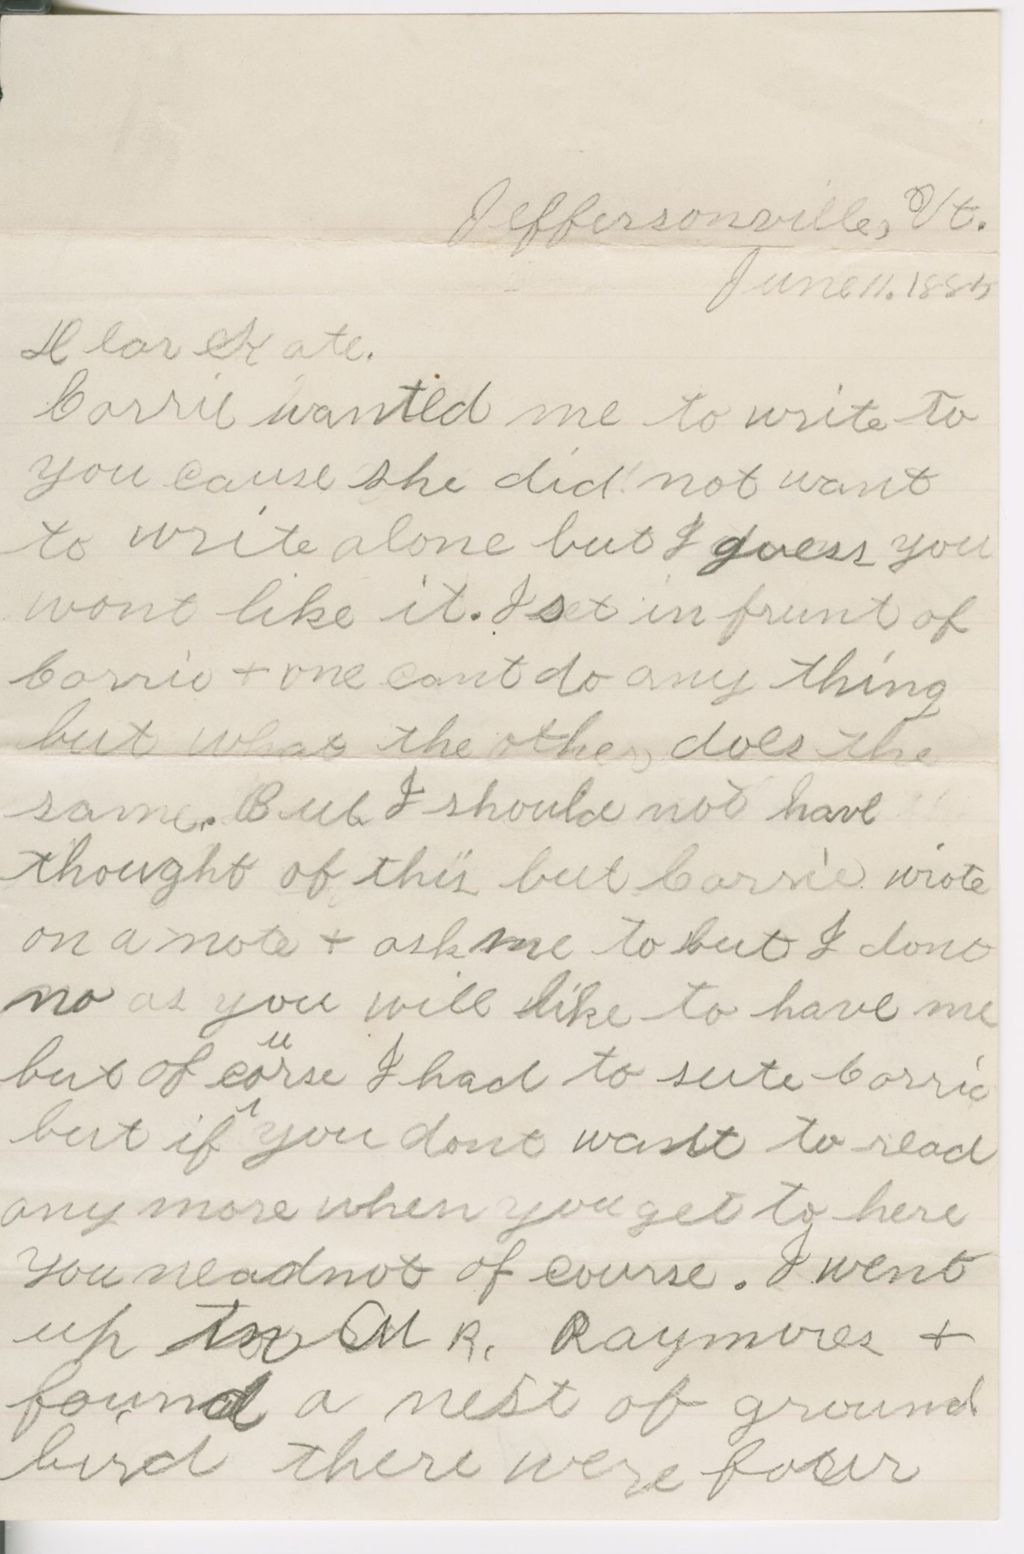 Jeffersonville, Vt.
June 11. 1885
Dear Kate.
Carrie wanted me to write to
you cause she did not want
to write alone but I guess you
wont like it. I set in frunt of
Carrie + one cant do any thing
but what the other does the
same. But I should not have
thought of this but Carrie wrote
on a note + ask me to but I dont
no as you will like to have me
but of course I had to sute Carrie
but if you dont want to read
any more when you get to here
you neadnot of course. I went
up to MR. Raymores +
found a nest of ground
bird there were four